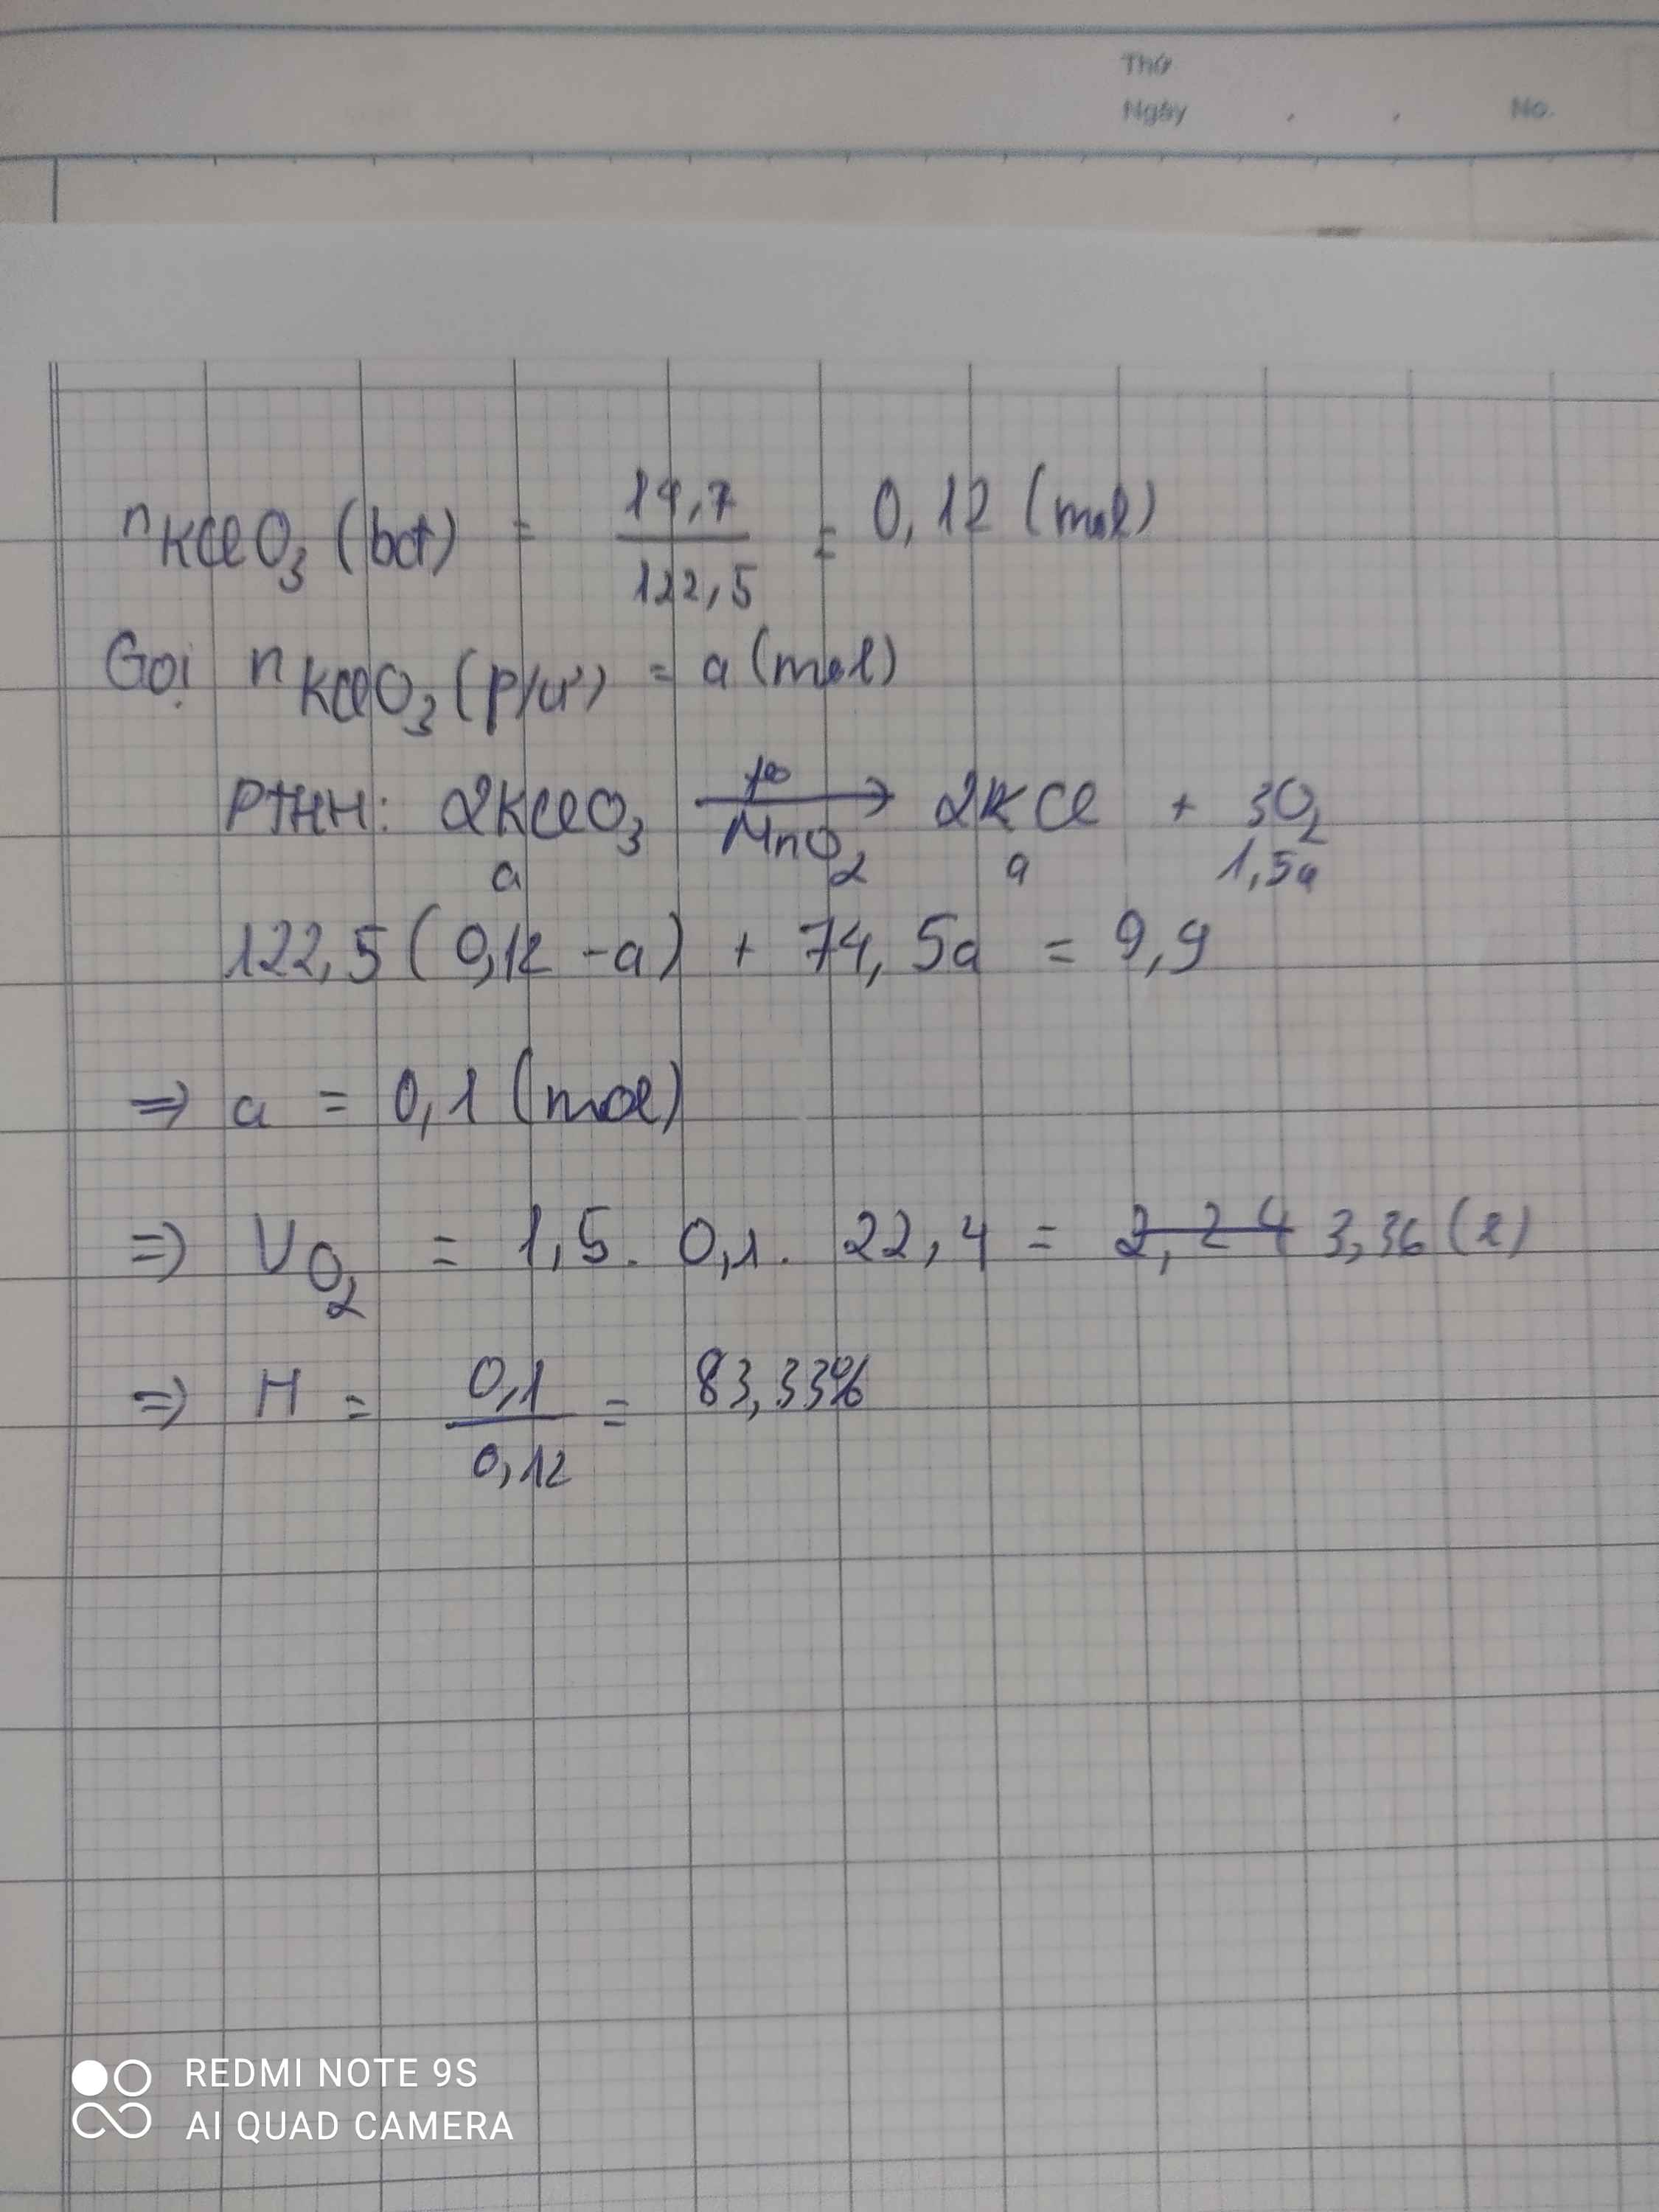 Thứ
Ngày . . No.
nKClO3 (bđ) = 14,7 / 122,5 = 0,12 (mol)
Gọi nKClO3 (p/ư) = a (mol)
PTHH: 2KClO3 —t°/MnO2→ 2KCl + 3O2
a a 1,5a
122,5 (0,12 - a) + 74,5a = 9,9
=> a = 0,1 (mol)
=> VO2 = 1,5 . 0,1 . 22,4 = 2,24 3,36 (l)
=> H = 0,1 / 0,12 = 83,33%
REDMI NOTE 9S
AI QUAD CAMERA